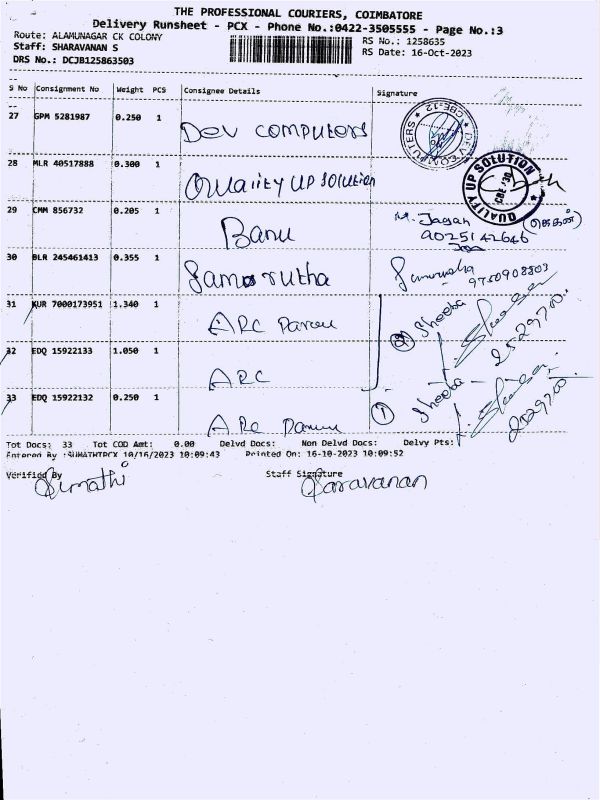 THE PROFESSIONAL COURIERS, COIMBATORE
Delivery Runsheet - PCX - Phone No.:0422-3505555 - Page No.:3
Route: ALAMUNAGAR CK COLONY
RS No.: 1258635
Staff: SHARAVANAN S
RS Date: 16-Oct-2023
DRS No.: DCJB125863503
S No Consignment No Weight PCS Consignee Details Signature
27 GPM 5281987 0.250 1 Dev computers
DEV COMPUTERS CBE-12
28 MLR 40517888 0.300 1 Quality up solution
QUALITY UP SOLUTION CBE
29 CMM 856732 0.205 1 Banu M. Jagan (ஜெகன்)
9025142646
30 BLR 245461413 0.355 1 Samorutha 9750908803
31 KUR 7000173951 1.340 1 ARC Sheeba
32 EDQ 15922133 1.050 1 ARC
33 EDQ 15922132 0.250 1 ARC ① Sheeba
Tot Docs: 33 Tot COD Amt: 0.00 Delvd Docs: Non Delvd Docs: Delvy Pts:
Entered By :SUMATHIPCX 10/16/2023 10:09:43 Printed On: 16-10-2023 10:09:52
Verified By Staff Signature
Sumathi Saravanan